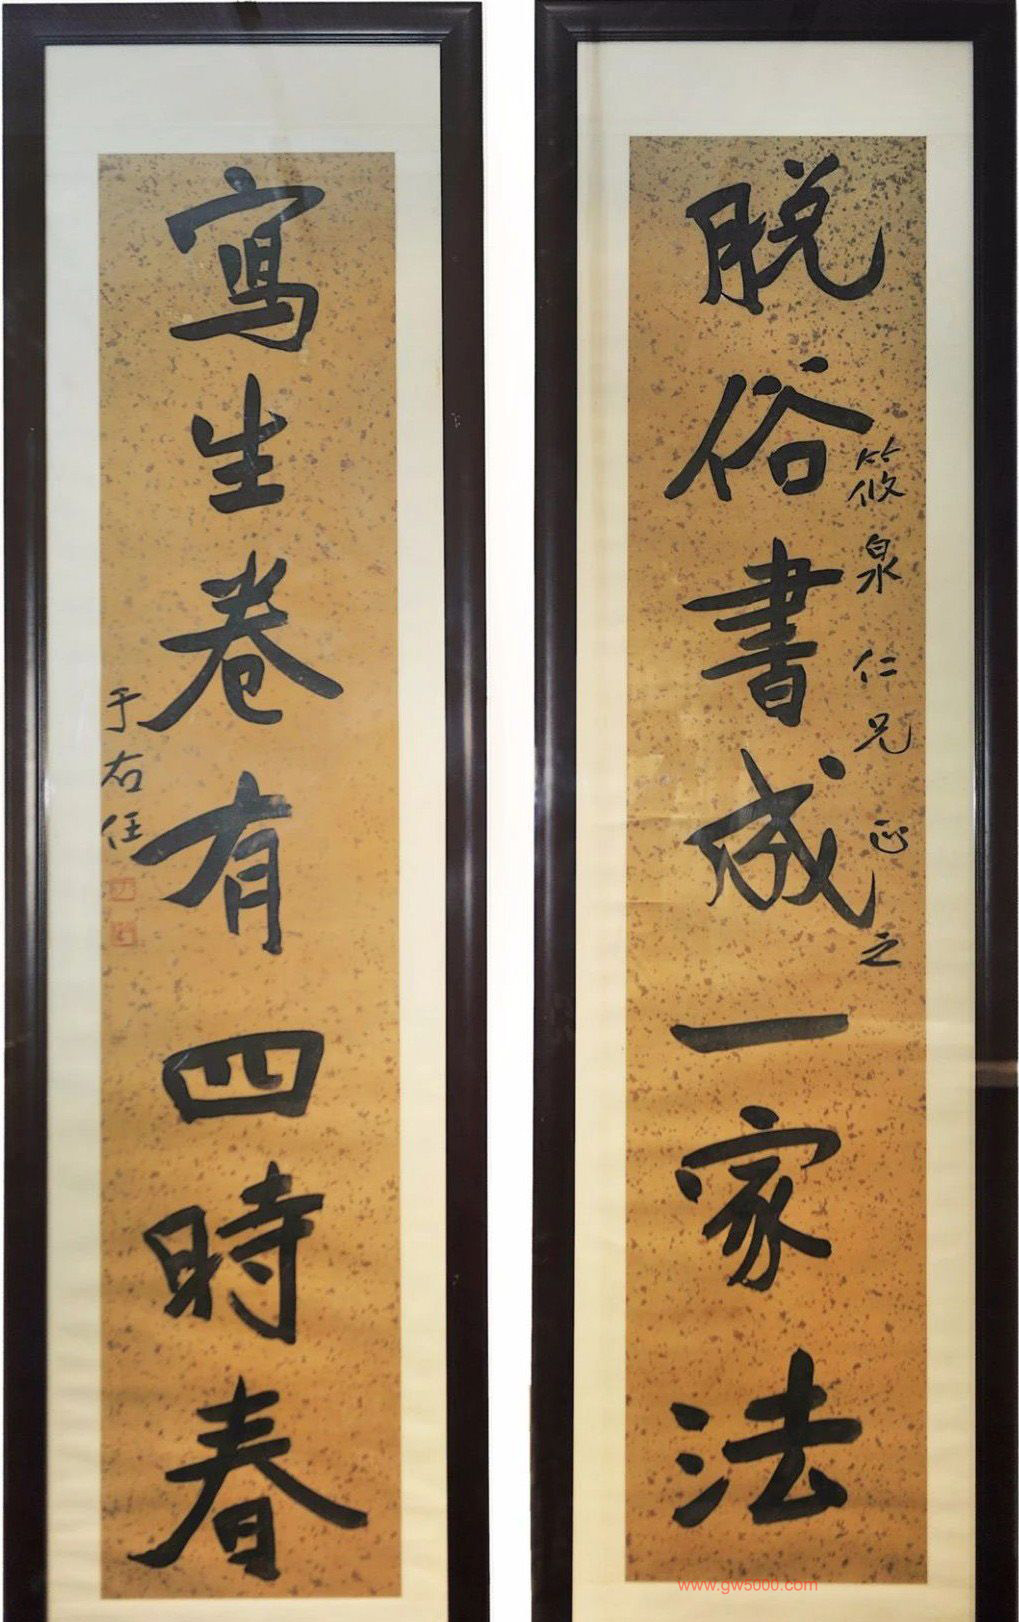 脱俗書成一家法
筱泉仁兄正之
寫生卷有四時春
于右任
www.gw5000.com